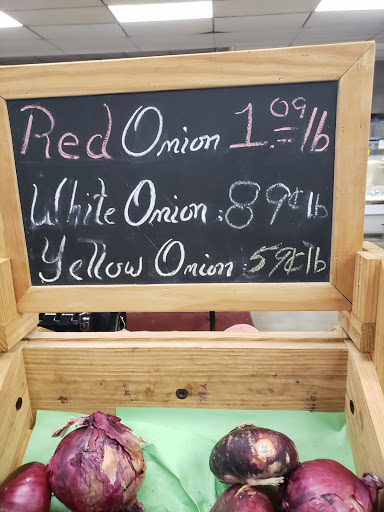 Red Onion 1.09 lb
White Onion: 89¢ lb
Yellow Onion: 59¢ lb